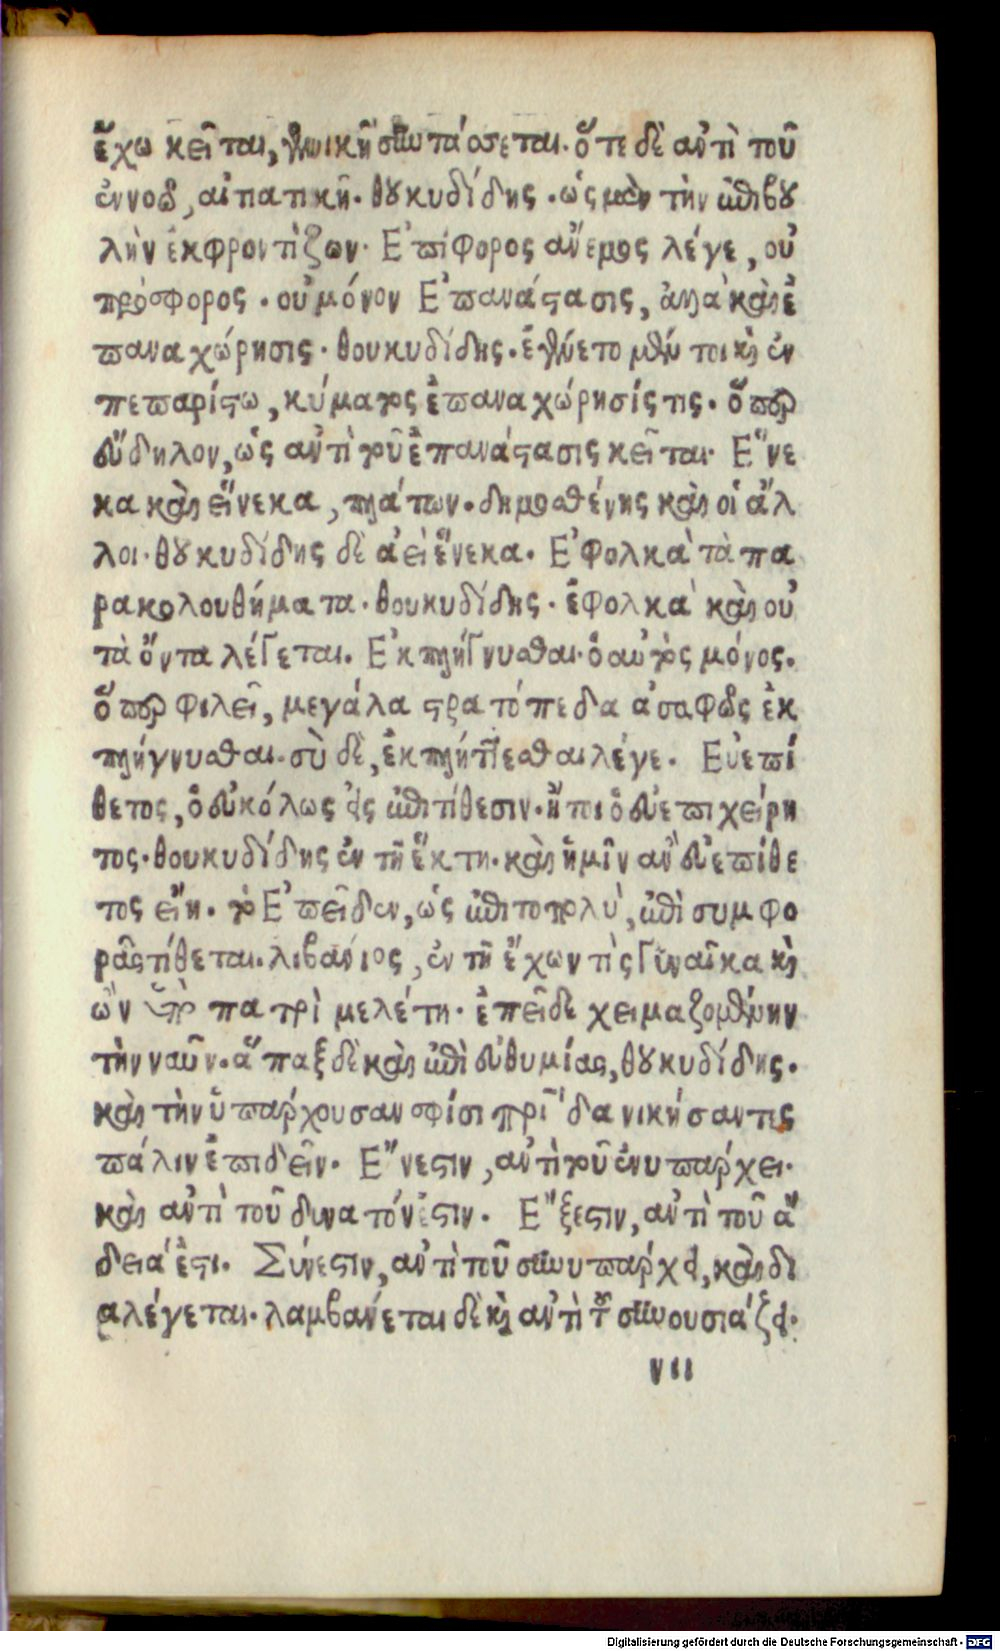 ἔχω κεῖται, γενικῇ συντάσσεται. ὅτε δὲ ἀντὶ τοῦ
ἐννοῶ, αἰτιατικῇ. θουκυδίδης. ὡς μὲν τὴν ἐπιβου
λὴν ἐκφροντίζων. Ἐπίφορος ἄνεμος λέγε, οὐ
πρόσφορος. οὐ μόνον Ἐπανάστασις, ἀλλὰ καὶ ἐ
παναχώρησις. θουκυδίδης. ἐγένετο μέντοι καὶ ἐν
πεπαρίστω, κύματος ἐπαναχώρησίς τις. ὅπερ
εὔδηλον, ὡς ἀντὶ τοῦ ἐπανάστασις κεῖται. Ἕνε
κα καὶ εἵνεκα, πλάτων. δημοσθένης καὶ οἱ ἄλ
λοι. θουκυδίδης δὲ ἀεὶ ἕνεκα. Ἐφολκὰ τὰ πα
ρακολουθήματα. θουκυδίδης. ἐφολκὰ καὶ οὐ
τὰ ὄντα λέγεται. Ἐκπλήγνυσθαι. ὁ αὐτὸς μόνος.
ὅπερ φιλεῖ, μεγάλα στρατόπεδα ἀσαφῶς ἐκ
πλήγνυσθαι. σὺ δὲ, ἐκπλήττεσθαι λέγε. Εὐεπί
θετος, ὁ εὐκόλως εἰς ἐπιτίθεσιν. ἤτοι ὁ εὐεπιχείρη
τος. θουκυδίδης ἐν τῇ ἕκτῃ. καὶ ἡμῖν ἂν εὐεπίθε
τος εἴη. τὸ Ἐπεῖδεν, ὡς ἐπιτοπολὺ, ἐπὶ συμφο
ρᾶς τίθεται. λιβάνιος, ἐν τῇ ἔχων τὶς γυναῖκα καὶ
ὢν πατρὶ μελέτῃ. ἐπεῖδε χειμαζομένην
τὴν ναῦν. ἅπαξ δὲ καὶ ἐπὶ εὐθυμίας, θουκυδίδης.
καὶ τὴν ὑπάρχουσαν σφίσι πατρίδα νικήσαντες
πάλιν ἐπιδεῖν. Ἔνεστιν, ἀντὶ τοῦ ἐνυπάρχει.
καὶ ἀντὶ τοῦ δυνατόν ἐστιν. Ἔξεστιν, ἀντὶ τοῦ ἄ
δειά ἐστι. Σύνεστιν, ἀντὶ τοῦ συνυπάρχει, καὶ δι
αλέγεται. λαμβάνεται δὲ καὶ ἀντὶ τοῦ συνουσιάζει.
νιι
Digitalisierung gefördert durch die Deutsche Forschungsgemeinschaft - DFG